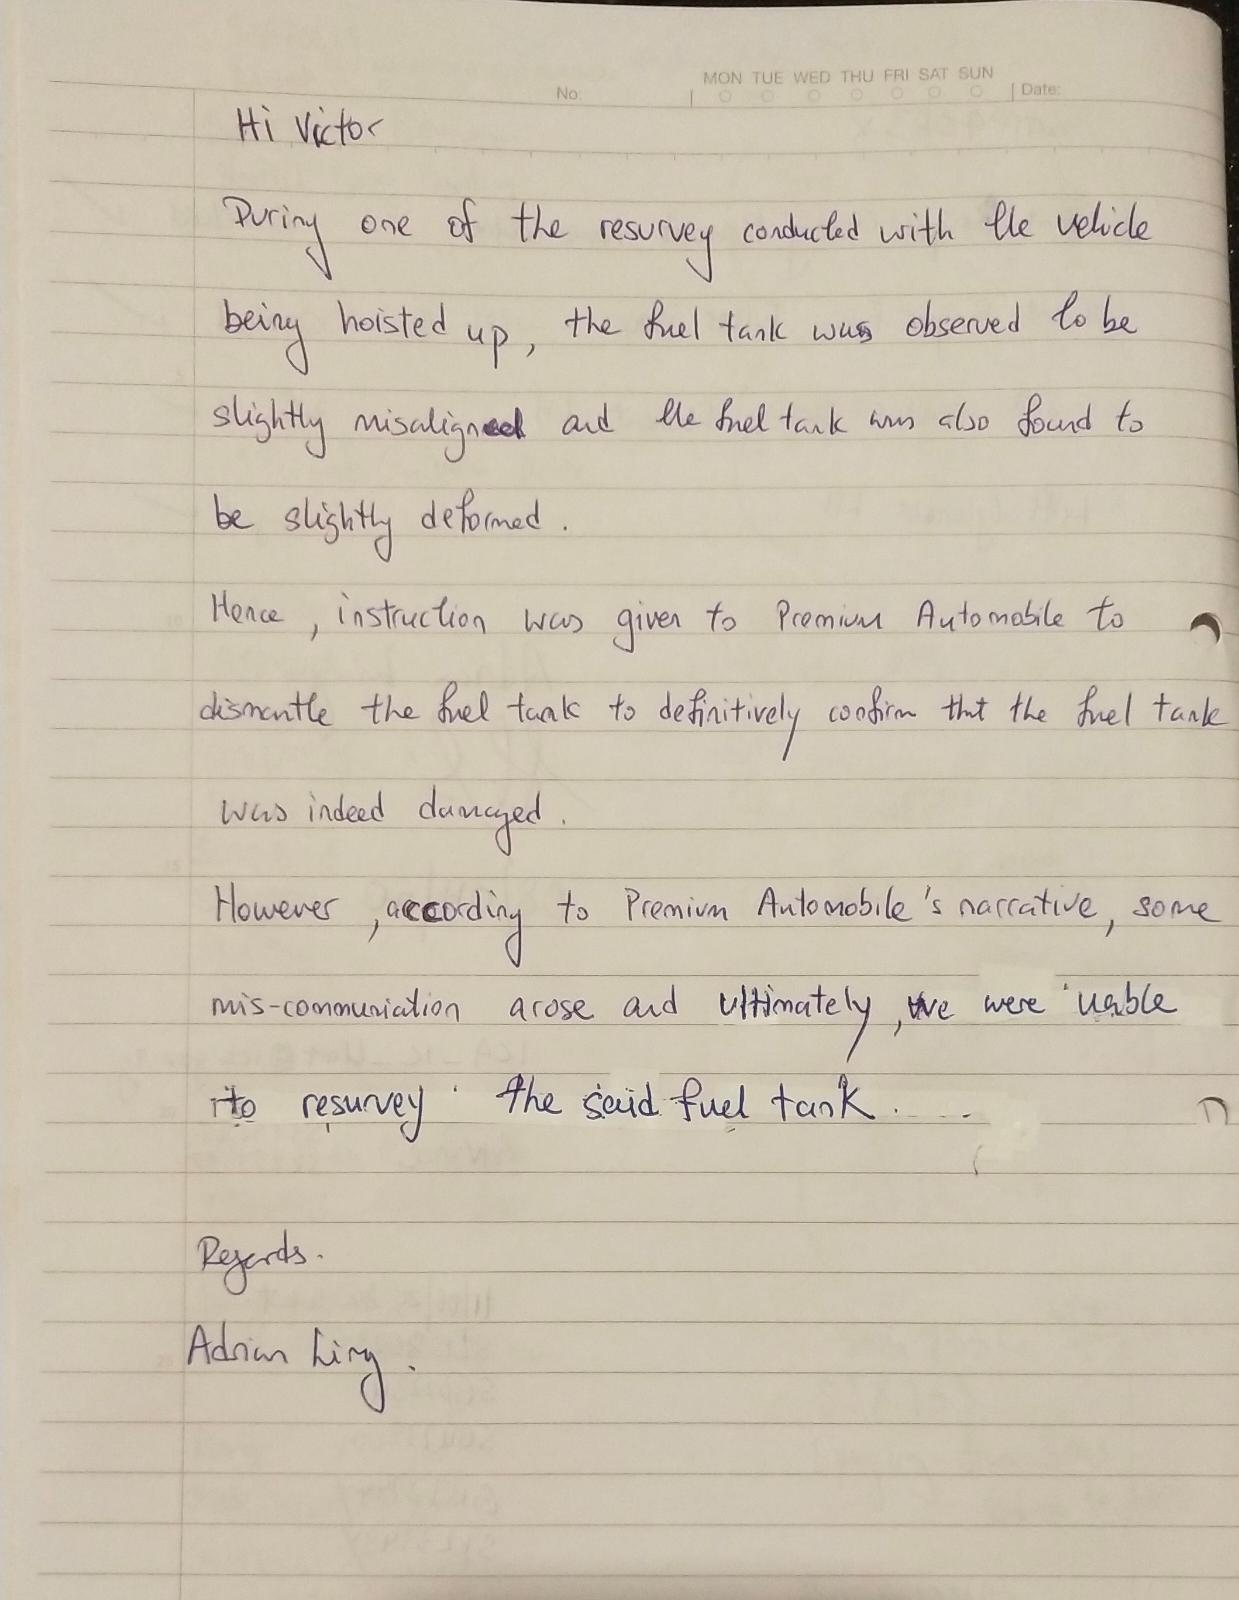 MON TUE WED THU FRI SAT SUN
No: Date:
Hi Victor
During one of the resurvey conducted with the vehicle
being hoisted up, the fuel tank was observed to be
slightly misaligned and the fuel tank was also found to
be slightly deformed.
Hence, instruction was given to Premium Automobile to
dismantle the fuel tank to definitively confirm that the fuel tank
was indeed damaged.
However, according to Premium Automobile's narrative, some
mis-communiation arose and ultimately, we were uable
to resurvey the said fuel tank.
Regards.
Adrian Ling.